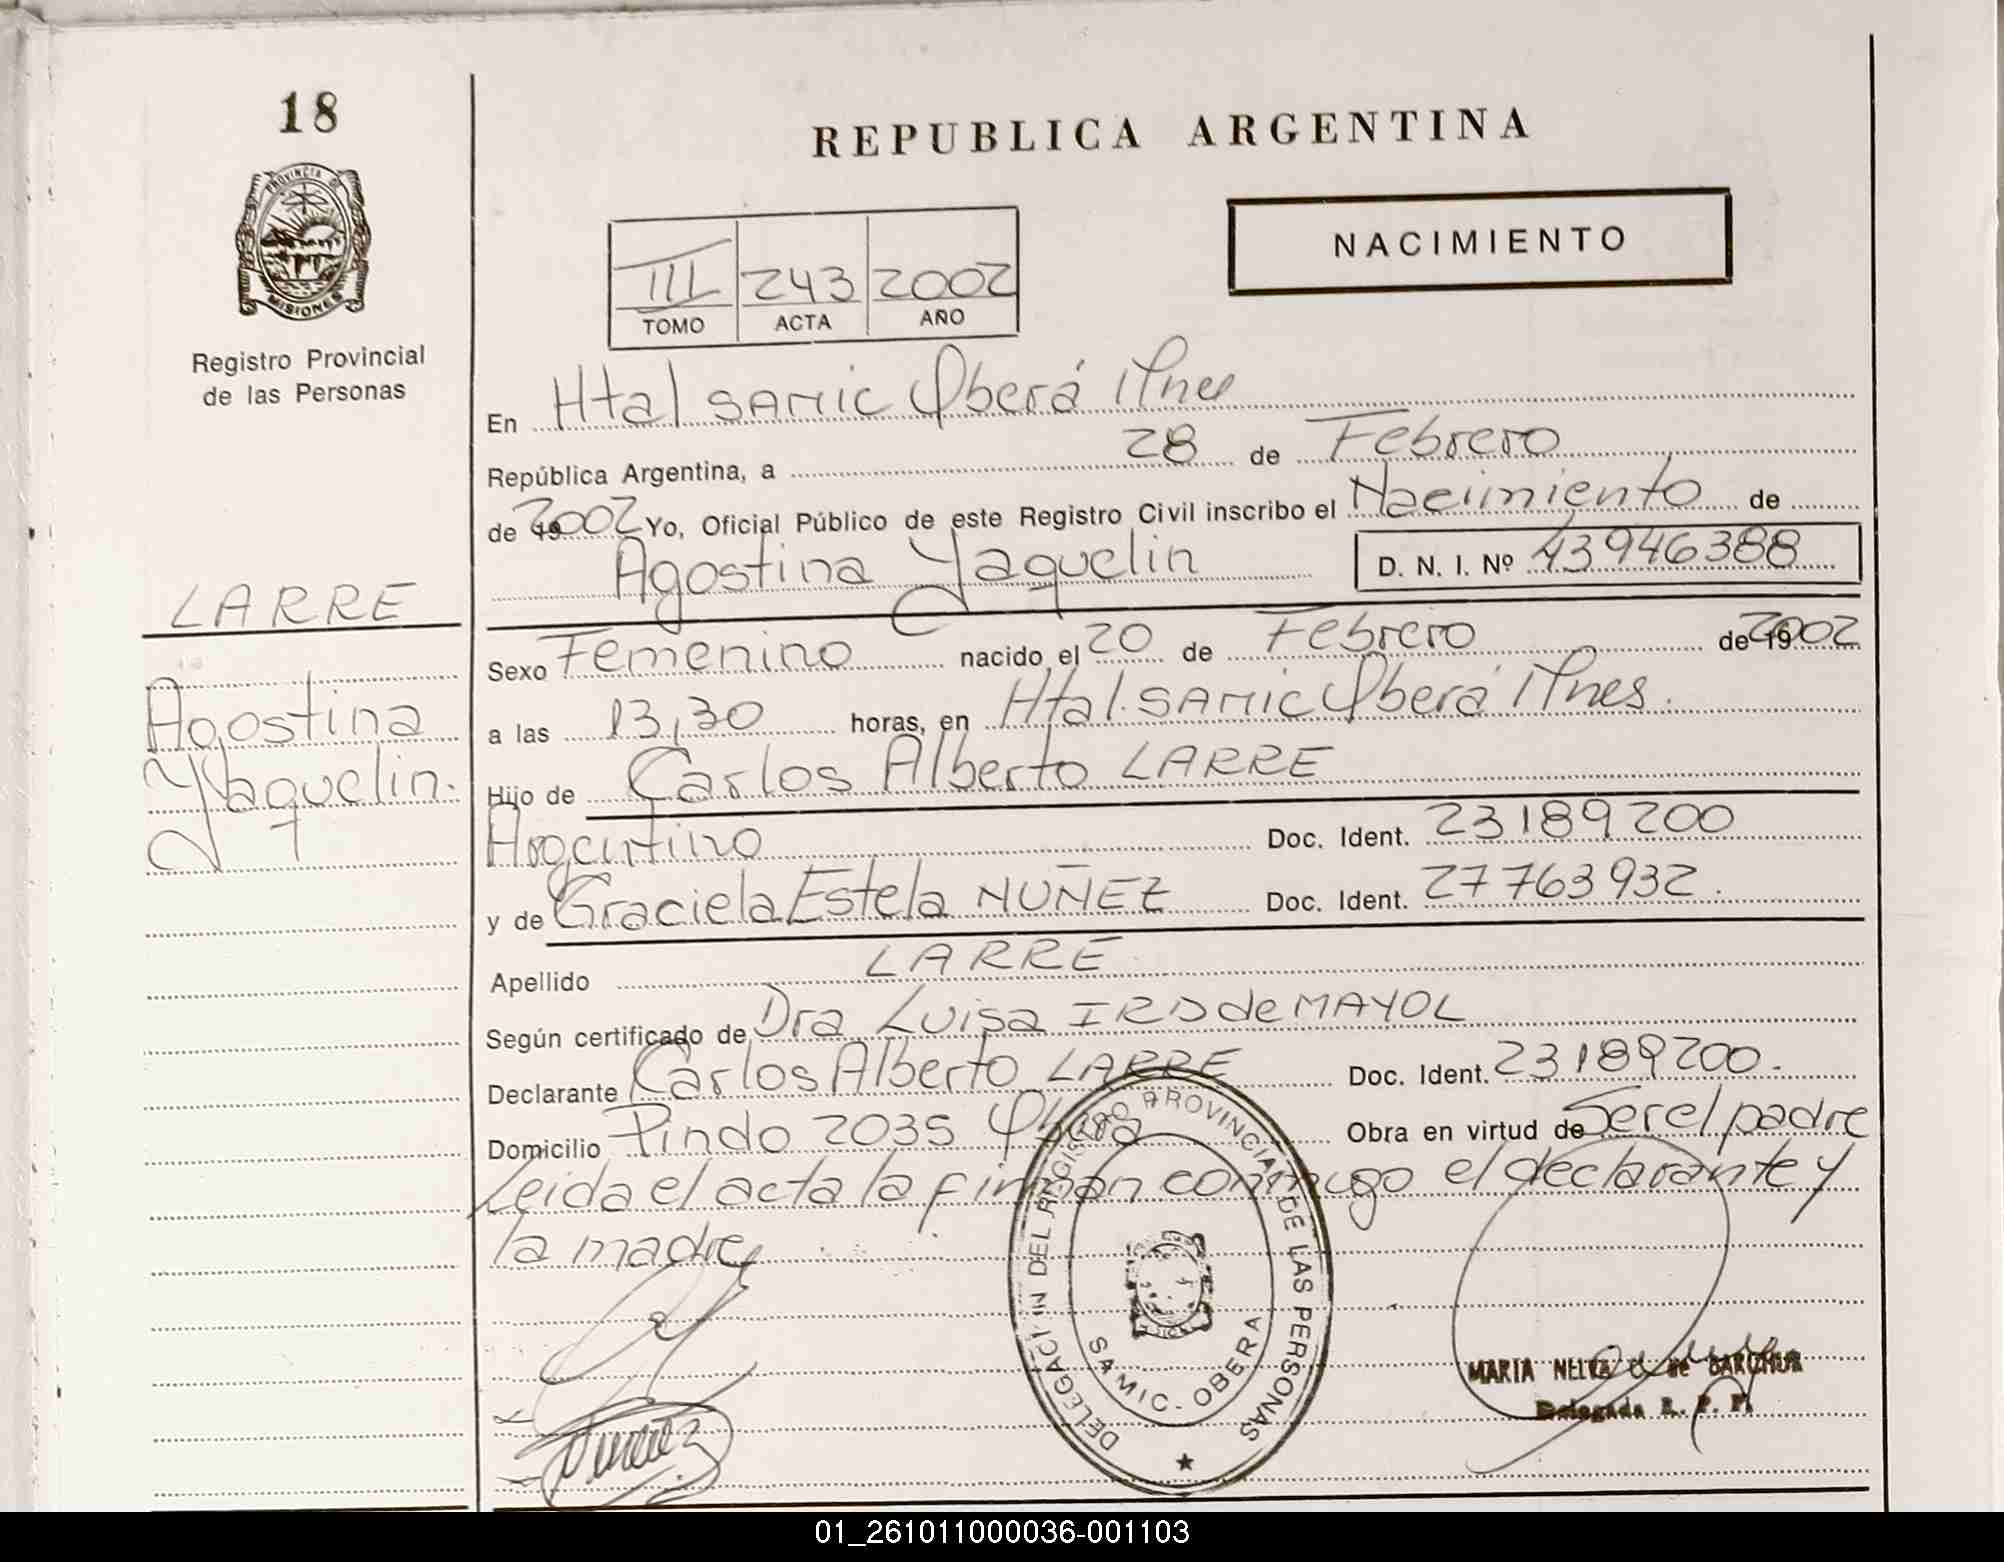 18
PROVINCIA DE
MISIONES
Registro Provincial
de las Personas
LARRE
Agostina
Yaquelin.
REPUBLICA ARGENTINA
NACIMIENTO
III 243 2002
TOMO ACTA AÑO
En Htal SAMIC Oberá Mnes
República Argentina, a 28 de Febrero
de 19 2002 Yo, Oficial Público de este Registro Civil inscribo el Nacimiento de
Agostina Yaquelin D. N. I. Nº 43946388
Sexo Femenino nacido el 20 de Febrero de 19 2002
a las 13,30 horas, en Htal. SAMIC Oberá Mnes.
Hijo de Carlos Alberto LARRE
Argentino Doc. Ident. 23189200
y de Graciela Estela NUÑEZ Doc. Ident. 27763932.
Apellido LARRE
Según certificado de Dra Luisa IRD de MAYOL
Declarante Carlos Alberto LARRE Doc. Ident. 23189200.
Domicilio Pindo 2035 Oberá Obra en virtud de Ser el padre
Leida el acta la firman conmigo el declarante y
la madre
DELEGACION DEL REGISTRO PROVINCIAL DE LAS PERSONAS
SAMIC - OBERA
MARIA NELVA de
Delegada R. P. P.
01_261011000036-001103